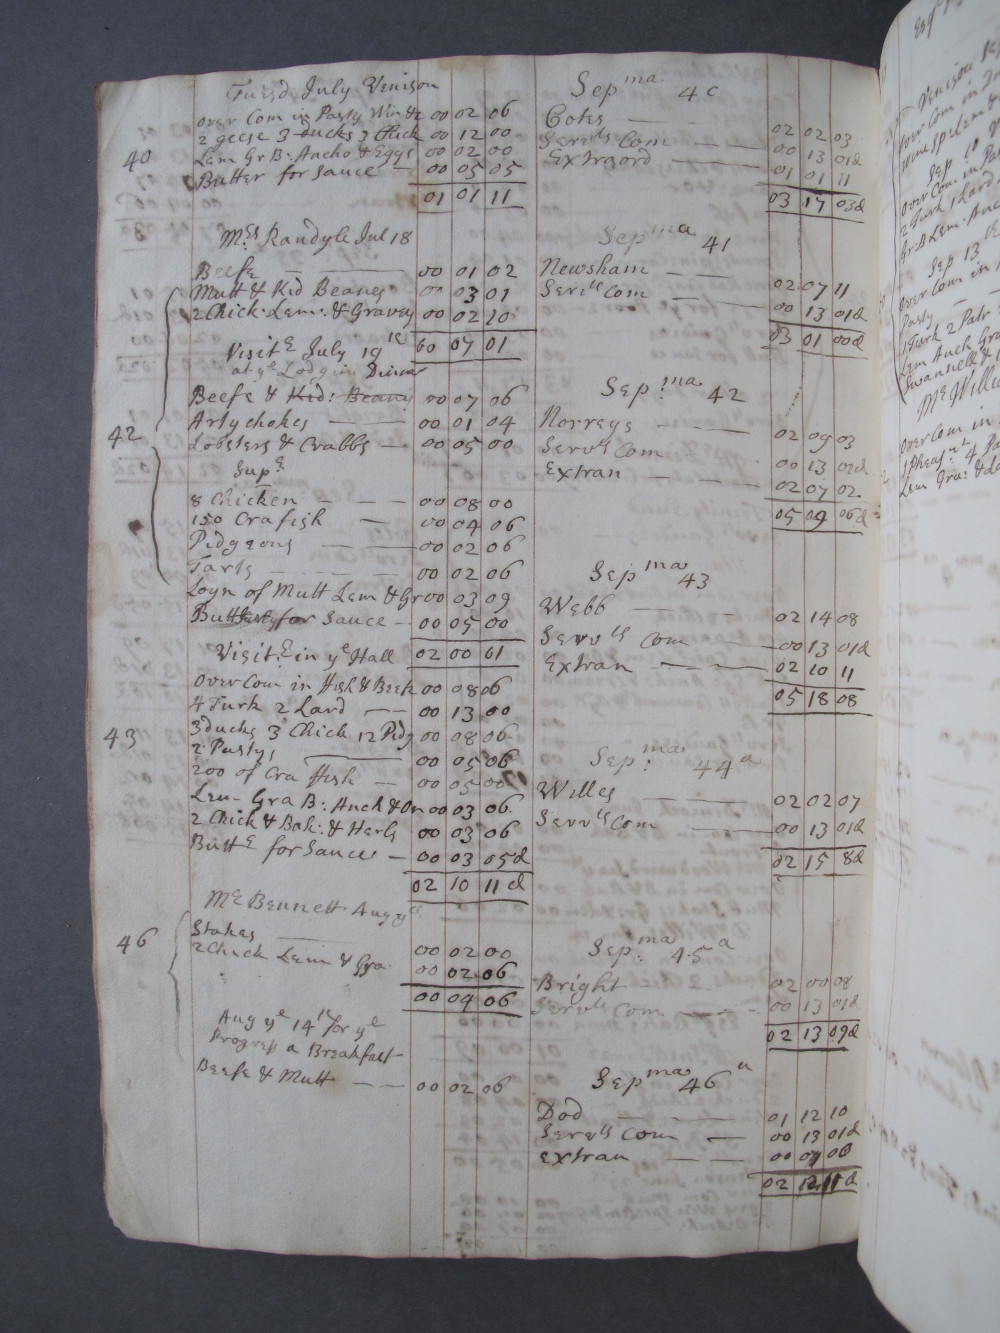 Tuesd July Venison
over Com in Pasty Win &c 00 02 06
2 geese 3 ducks 3 Chick 00 12 00
40
Lem Gr B: Ancho & Eggs 00 02 00
Butter for Sauce 00 05 05
01 01 11
Mrs Randyle Jul 18
Beefe 00 01 02
Mutt & Kid Beanes 00 03 01
2 Chick: Lem: & Gravey 00 02 10
Visitr July 19th 00 07 01
at ye Lodgin Dinner
Beefe & Kid: Beanes 00 07 06
Artychokes 00 01 04
42
Lobsters & Crabbs 00 05 00
Supr
8 Chicken 00 08 00
150 Crafish 00 04 06
Pidgeons 00 02 06
Tarts 00 02 06
Loyn of Mutt Lem & Gr 00 03 09
Butt for Sauce 00 05 00
Visitr in ye Hall 02 00 01
over Com in fish & Beek 00 08 06
4 Turk 2 Lard 00 13 00
43
3 ducks 3 Chick 12 Pidg 00 08 06
2 Pastys 00 05 06
200 of Cra ffish 00 05 00
Lem Gra B: Anch & On 00 03 06
2 Chick & Bak: & Herbs 00 03 06
Buttr for Sauce 00 03 05d
02 10 11 d
Mr Bennett Aug
46
Stakes 00 02 00
2 Chick Lem & Gra 00 02 06
00 04 06
Aug ye 14th for ye
Progress a Breakfast
Beefe & Mutt 00 02 06
Sepma 40
Cotes 02 02 03
Servts Com 00 13 01d
Extraord 01 01 11
03 17 03d
Sepma 41
Newsham 02 07 11
Servts Com 00 13 01d
03 01 00d
Sep:ma 42
Norreys 02 09 03
Servts Com 00 13 01d
Extran 02 07 02
05 09 06d
Sepma 43
Webb 02 14 08
Servts Com 00 13 01d
Extran 02 10 11
05 18 08
Sep:ma 44a
Willes 02 02 07
Servts Com 00 13 01d
02 15 8d
Sep:ma 45a
Bright 02 00 08
Servts Com 00 13 01d
02 13 09d
Sepma 46a
Dod 01 12 10
Servts Com 00 13 01d
Extran 00 07 00
02 12 11d
Venison
over Com in
Sep 10
over Com in
2 Turk 1 Lard
Gr B Lem: Anch
Sep 13th
over Com in
Pasty
1 Turk 2 Patr
Lem Anch Gra
Mr Willes
over Com in
Lem Gra: &